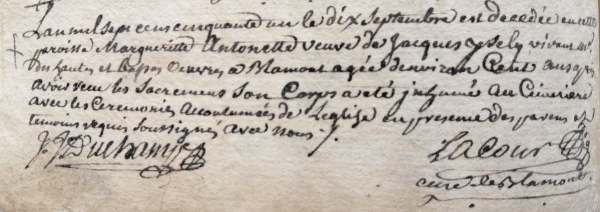 L'an mil sept cens cinquante un le dix Septembre est decedée en cette
paroisse Margueritte Antonette veuve de Jacques ysely vivant M.e
des hautes et basses Oeuvres a Blamont agée denviron Cent ans aprés
avoir recu les Sacremens Son Corps a été inhumé au Cimetiere
avec les Ceremonies Accoutumées de Leglise en presence des parens et
temoins requis Soussignés avec nous
J. J. Duchamp
Lacour
curé de Blamont